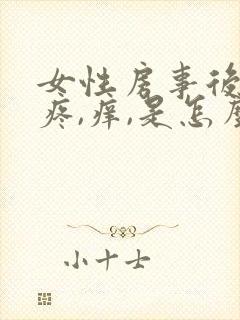 女性房事後
疼,痒,是怎
小十士